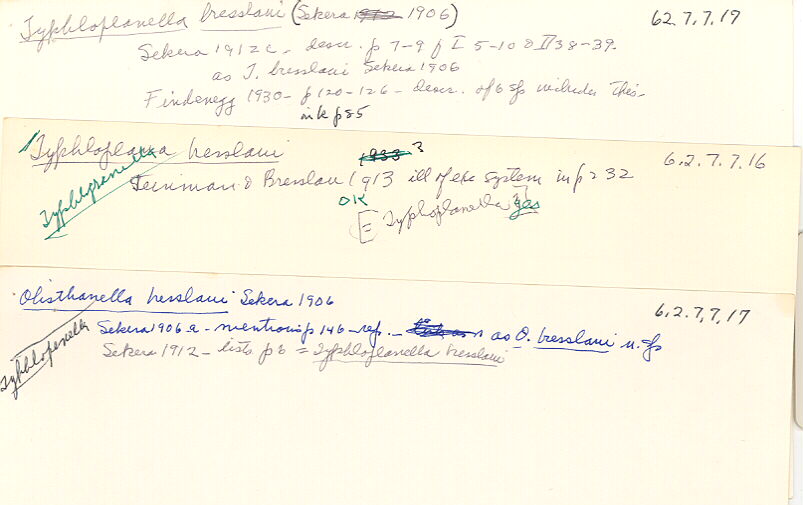 Typhloplanella bresslaui (Sekera 1912 1906) 62.7.7.17
Sekera 1912c - descr. p 7-9 f I 5-10 & II 38-39-
as T. bresslaui Sekera 1906
Findenegg 1930 - p 120-126 - descr. of 6 sp includes this-
in k p 85
Typhloplana bresslaui 1933 3 6.2.7.7.16
Typhloplanella
Steinman & Bresslau 1913 ill of exc system in p 232
OK
[= Typhloplanella ?] Yes
Olisthanella bresslaui Sekera 1906 6.2.7.7.17
Typhloplanella
Sekera 1906 a - mentions p 146 - ref. - as O. bresslaui n. sp
Sekera 1912 - lists p 6 = Typhloplanella bresslaui